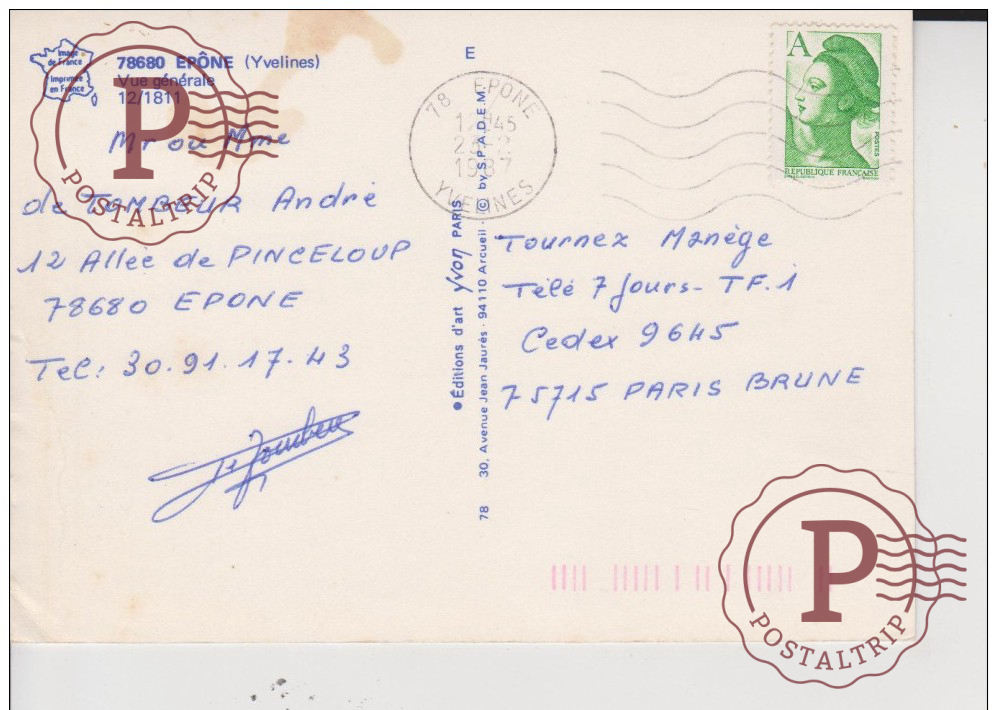 Image
de France
Imprimée
en France
78680 EPÔNE (Yvelines)
Vue générale
12/1811
P
POSTALTRIP
Mr ou Mme
de TOMBEUR André
12 Allée de PINCELOUP
78680 EPONE
Tel: 30.91.17.43
E
78 EPONE
1987
YVELINES
A
POSTES
REPUBLIQUE FRANÇAISE
● Éditions d'art yvon PARIS
78 30, Avenue Jean Jaurès - 94110 Arcueil - © by S.P.A.D.E.M.
Tournez Manège
Télé 7 Jours - TF.1
Cedex 9645
75715 PARIS BRUNE
P
POSTALTRIP